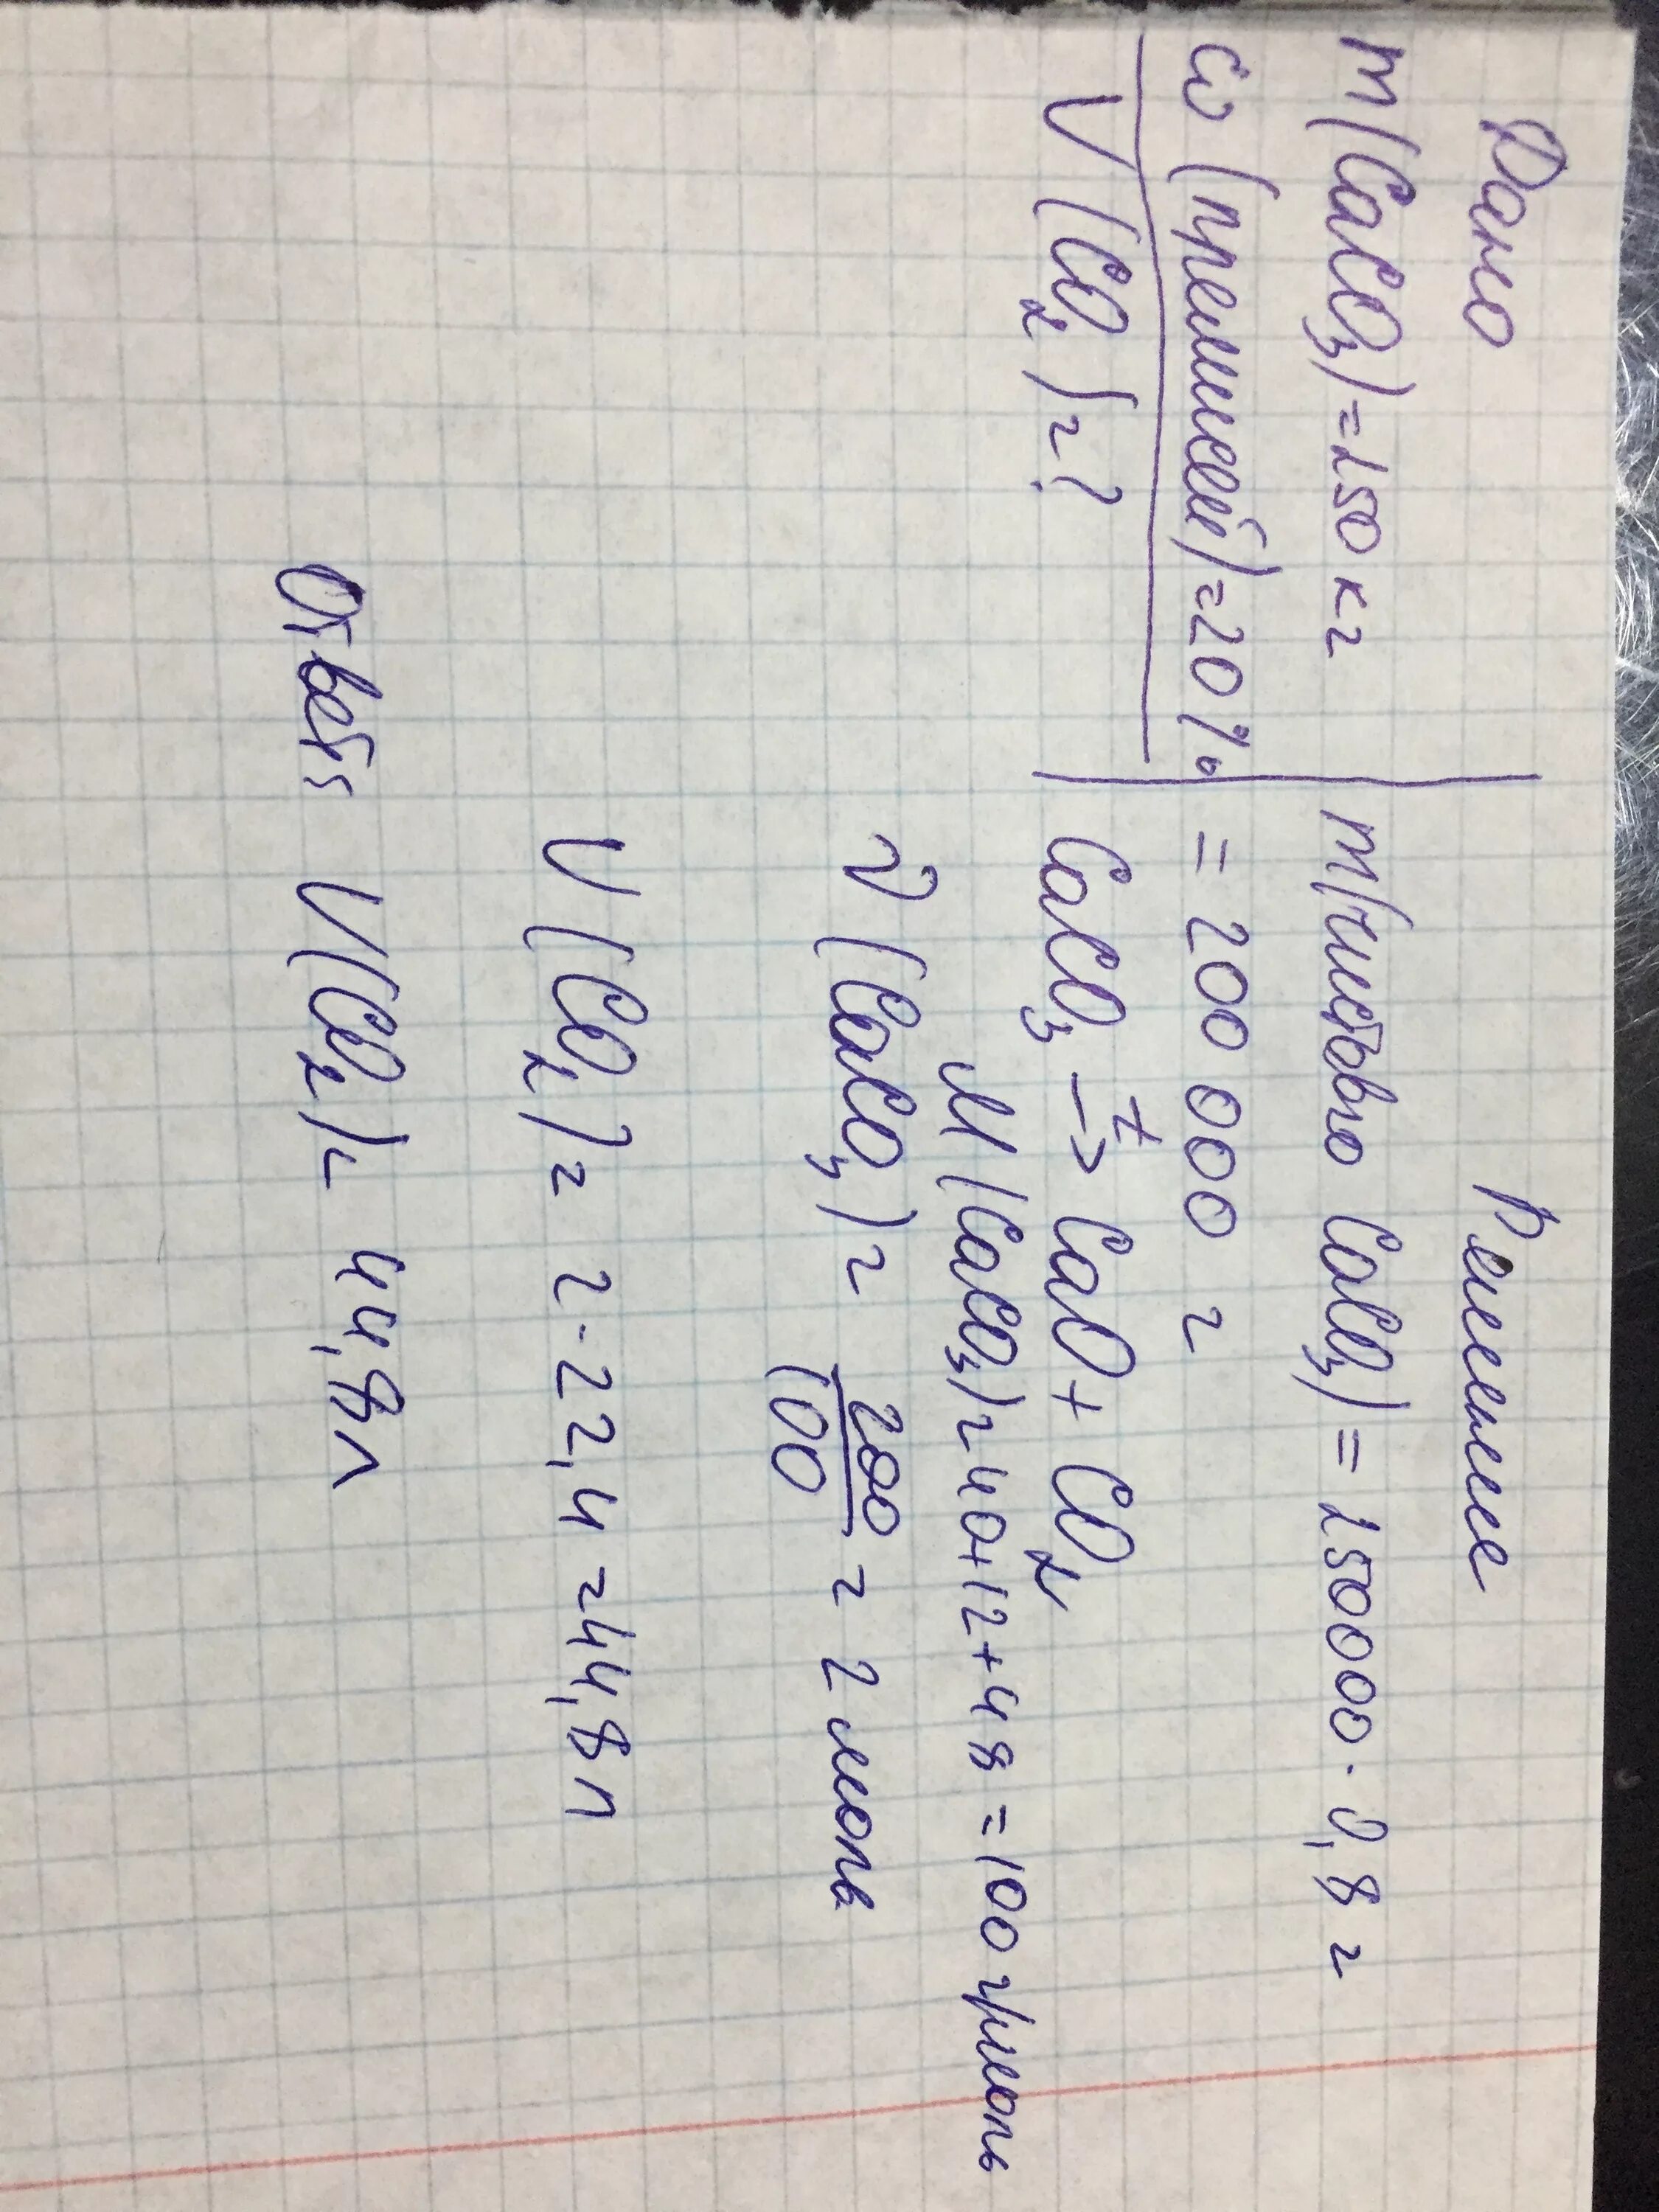 Дано
m(CaCO₃)=250 кг
ω (примисей)=20%
V (CO₂)=?
Решение
m(чистого CaCO₃) = 250000 · 0,8 =
= 200 000 г
CaCO₃ –t→ CaO + CO₂
M(CaCO₃)=40+12+48=100 г/моль
ν(CaCO₃)= 200/100 = 2 моль
V(CO₂)= 2·22,4=44,8 л
Ответ: V(CO₂)= 44,8 л